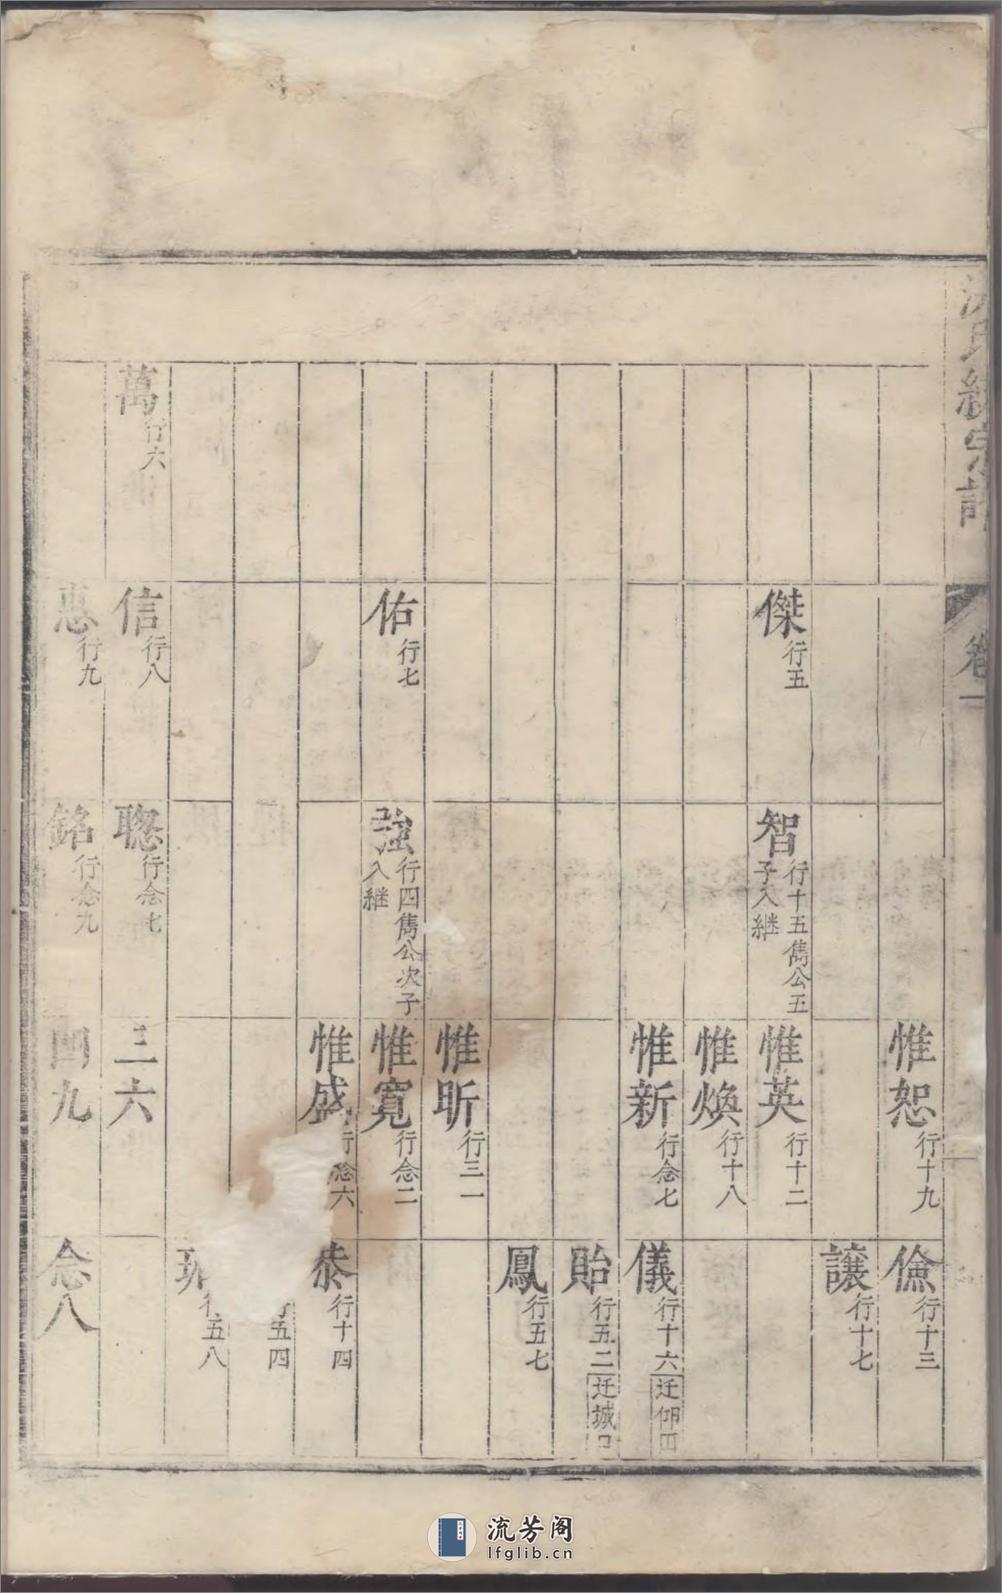 氏統宗譜
卷一
惟恕行十九
儉行十三
讓行十七
傑行五
智行十五雋公五
子入継
惟英行十二
惟煥行十八
惟新行念七
儀行十六迁仰田
貽行五二迁城口
鳳行五七
惟昕行三一
佑行七
強行四雋公次子
入継
惟寬行念二
惟盛行念六
恭行十四
行五四
行五八
萬行六
信行八
聰行念七
三六
惠行九
銘行念九
四九
念八
流芳阁
lfglib.cn